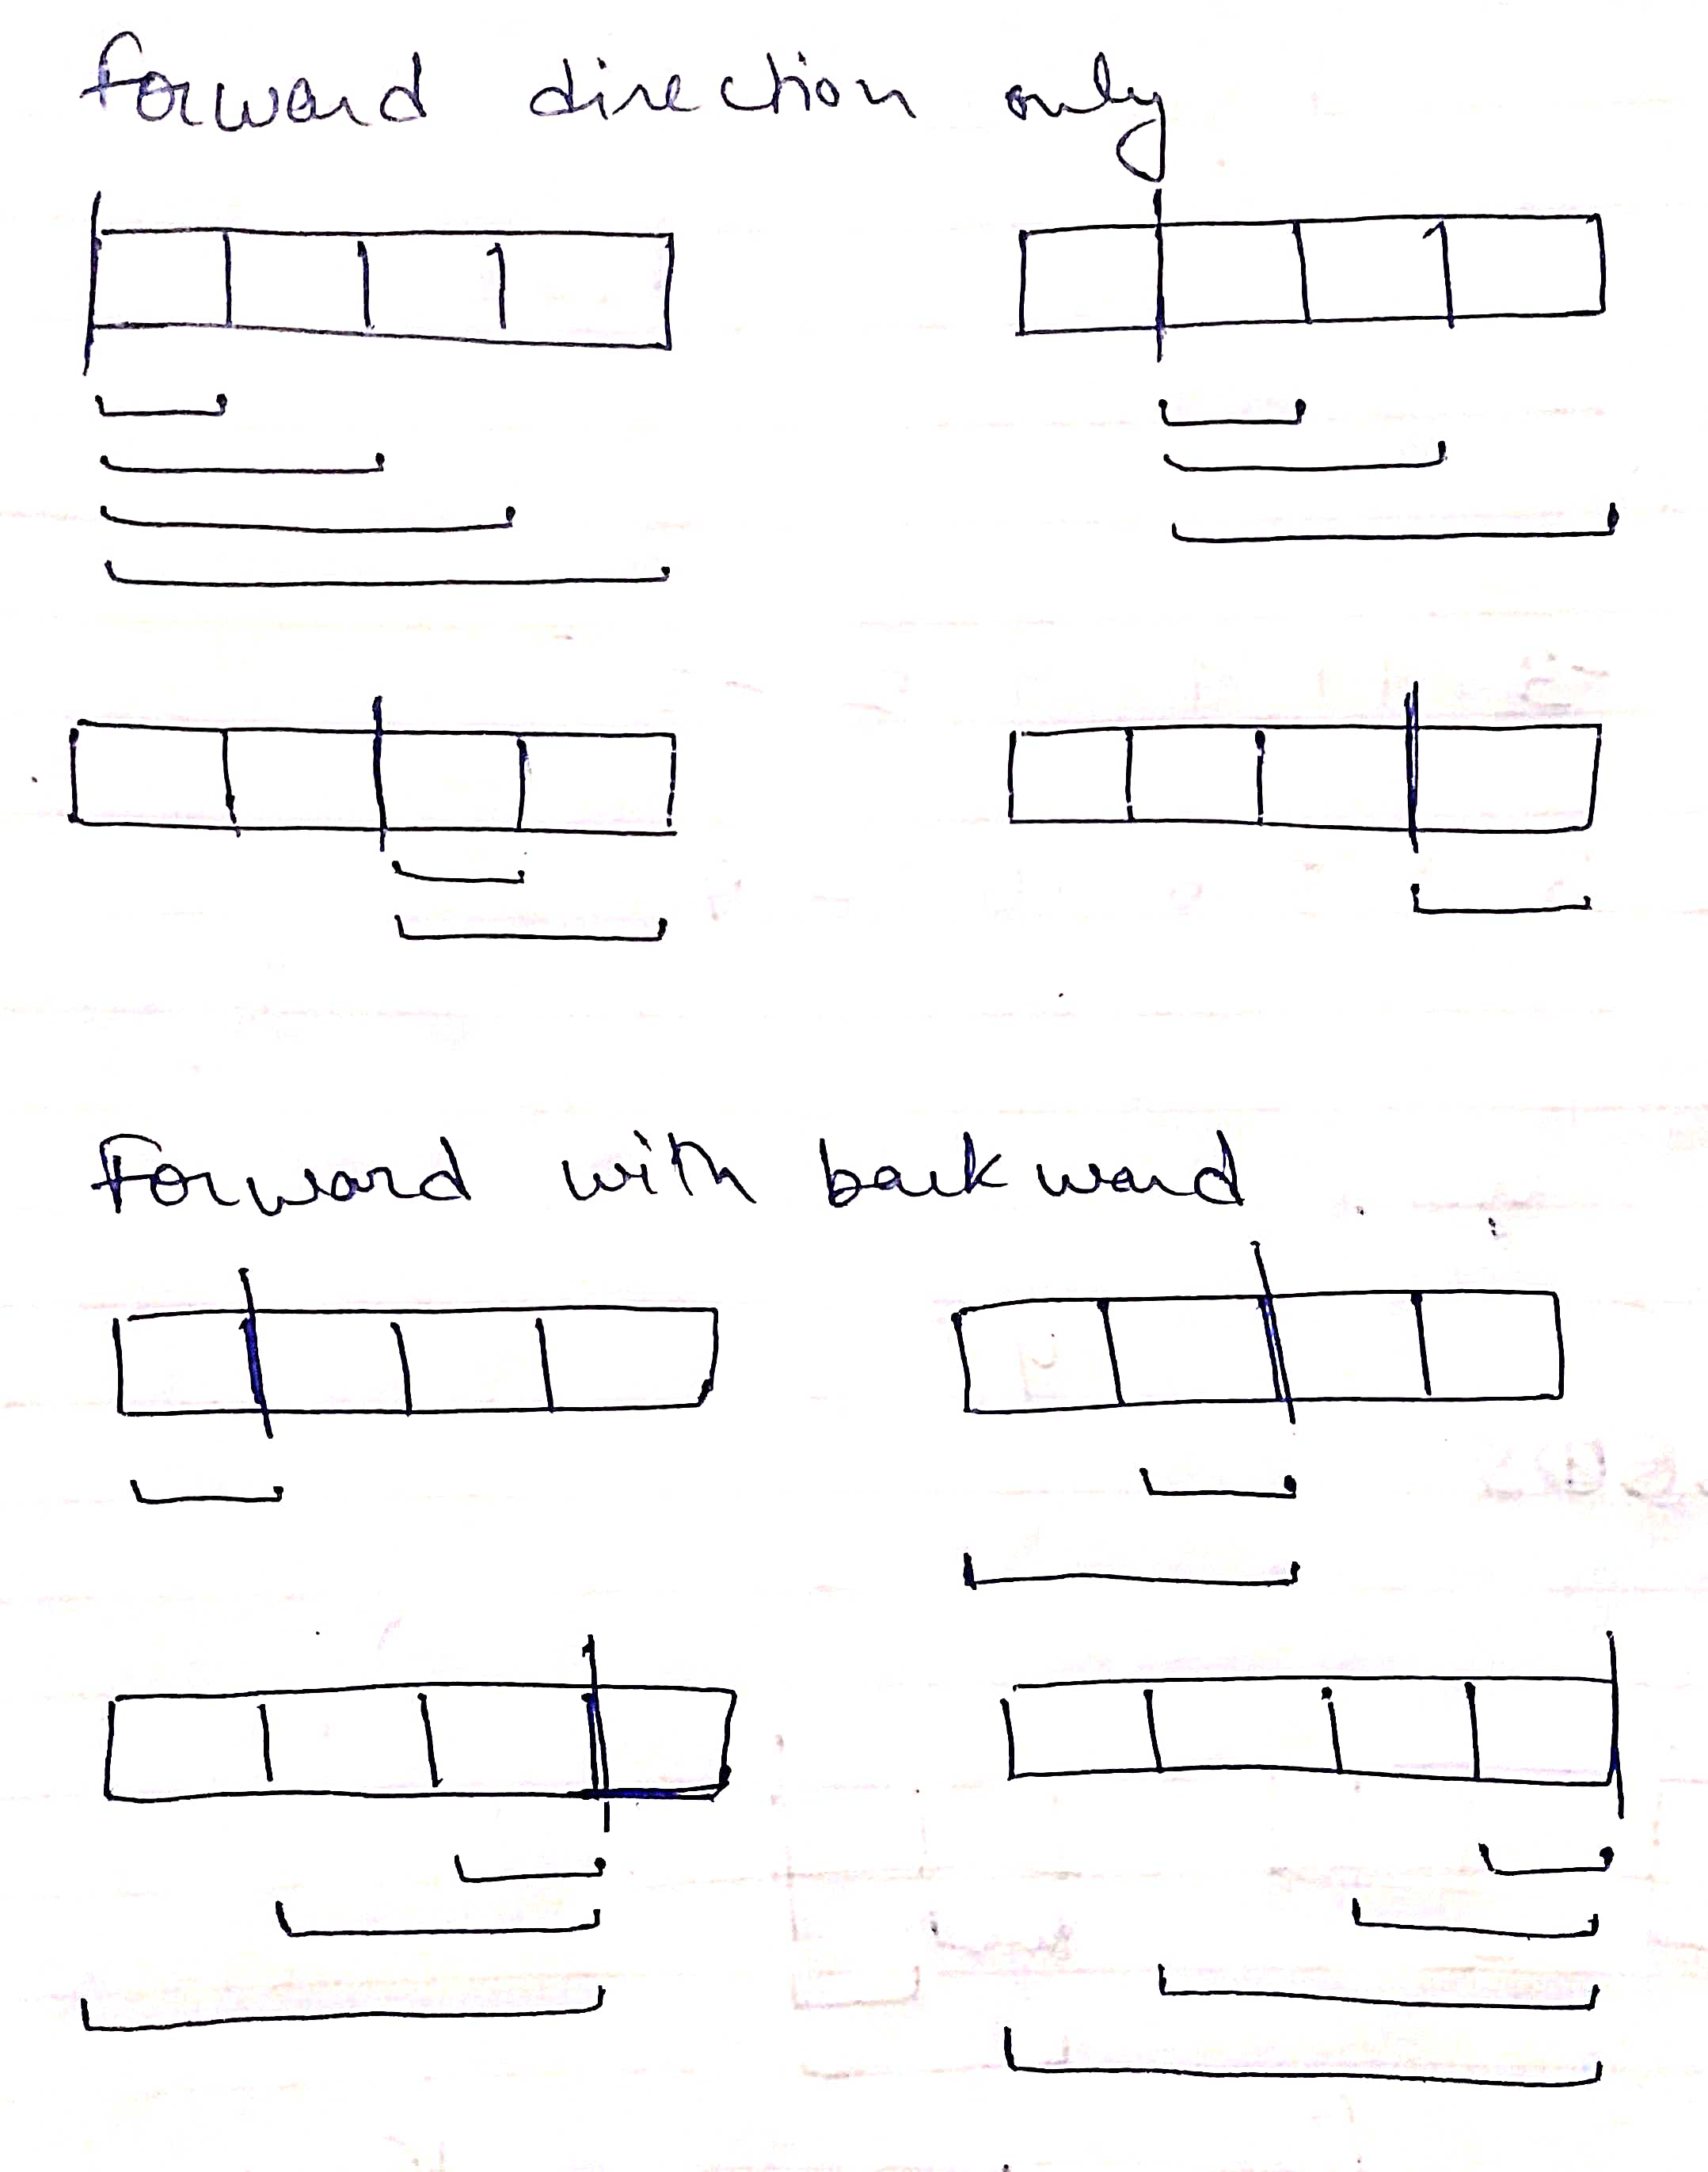 forward direction only
Forward with backward